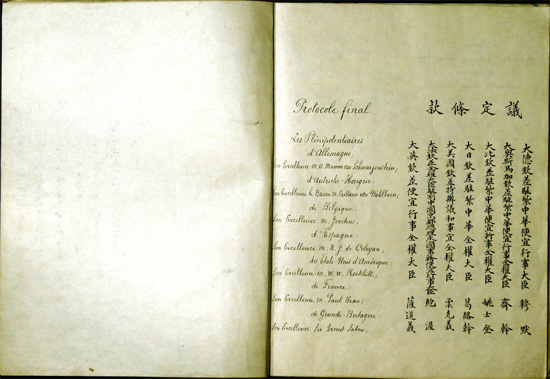 Protocole final
Les Plénipotentiaires
d'Allemagne,
Son Excellence M. A. Mumm von Schwarzenstein;
d'Autriche-Hongrie:
Son Excellence le Baron M. Czikann von Wahlborn;
de Belgique:
Son Excellence M. Joostens;
d'Espagne:
Son Excellence M. B. J. de Cologan;
des États-Unis d'Amérique:
Son Excellence M. W. W. Rockhill;
de France:
Son Excellence M. Paul Beau;
de Grande-Bretagne:
Son Excellence Sir Ernest Satow;
議定條款
大德欽差駐紮中華便宜行事大臣 穆默
大奧斯馬加欽差駐紮中華便宜行事全權大臣 齊幹
大比欽差駐紮中華便宜行事全權大臣 姚士登
大日欽差駐紮中華全權大臣 葛絡幹
大美國欽差特辦議和事宜全權大臣 柔克義
欽差全權大臣駐紮中國京都總理本國事務便宜行事 鮑渥
大英欽差便宜行事全權大臣 薩道義